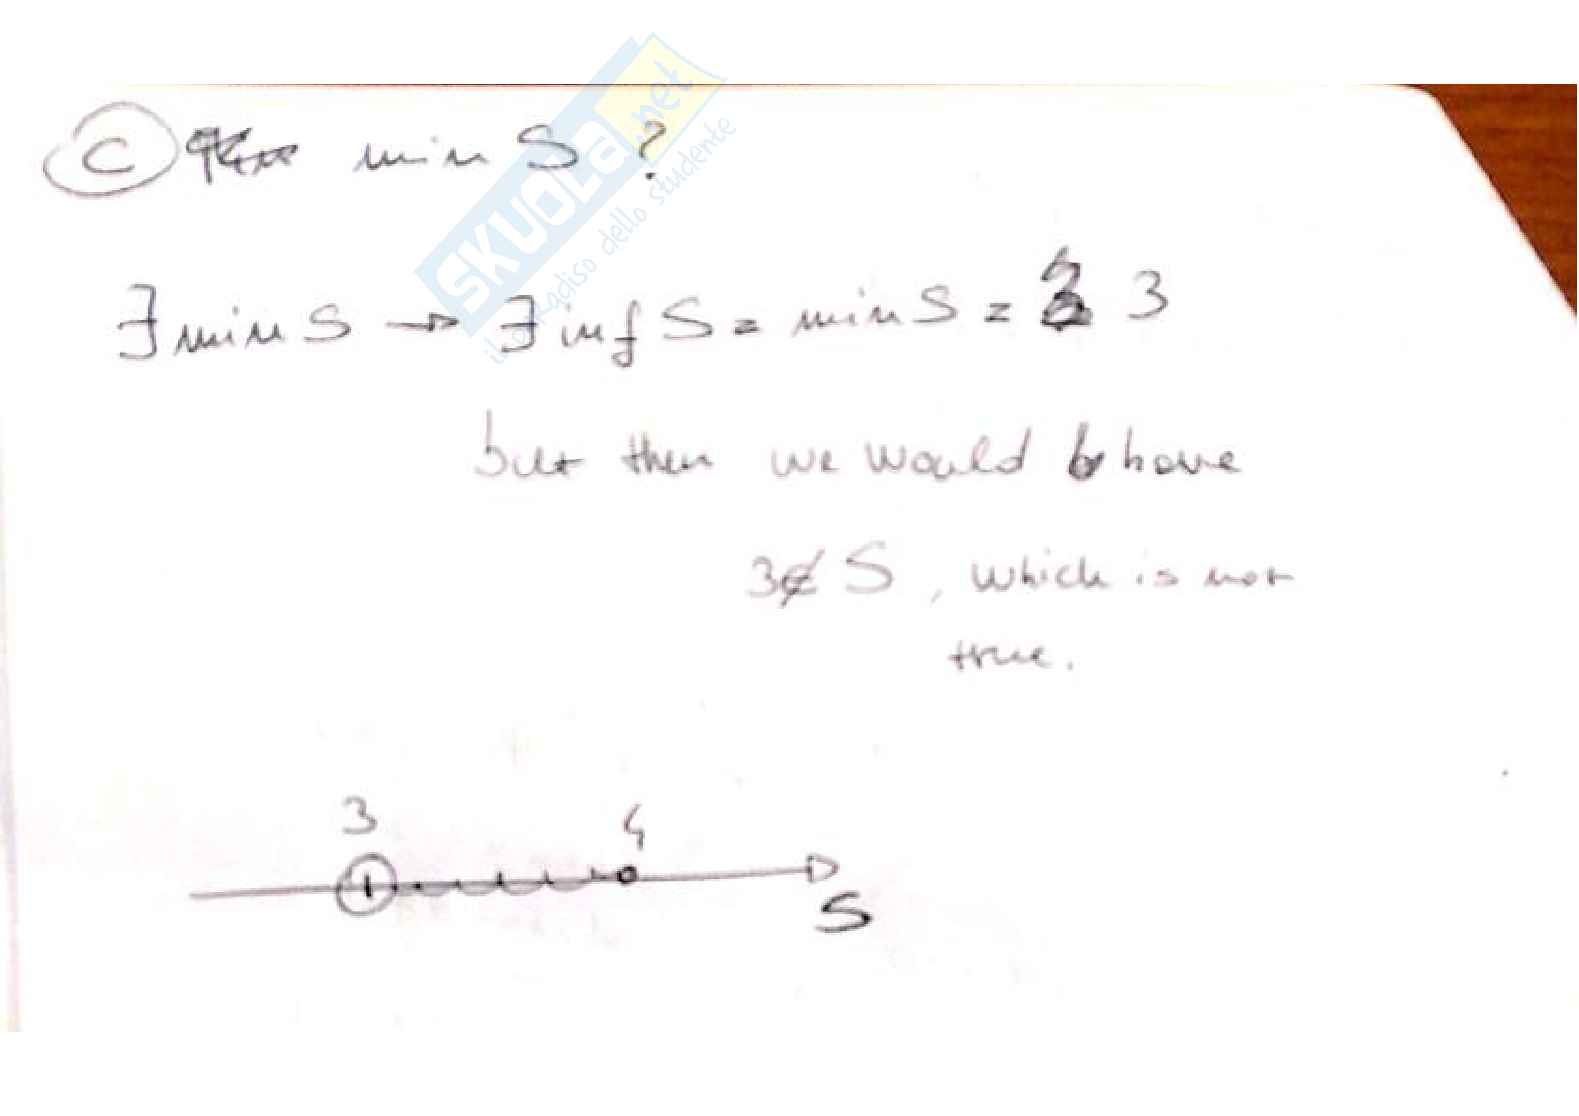 C min S ?
SKUOLA.net
il paradiso dello studente
∃ min S → ∃ inf S = min S = 3
but then we would have
3∉S, which is not
true.
3 4
S